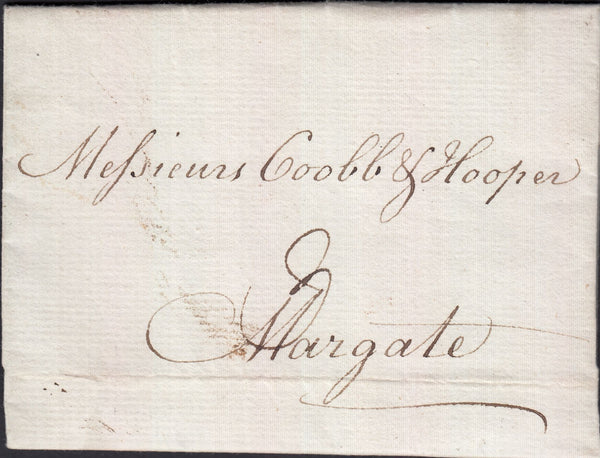 Messieurs Coobb & Hooper
2
Margate